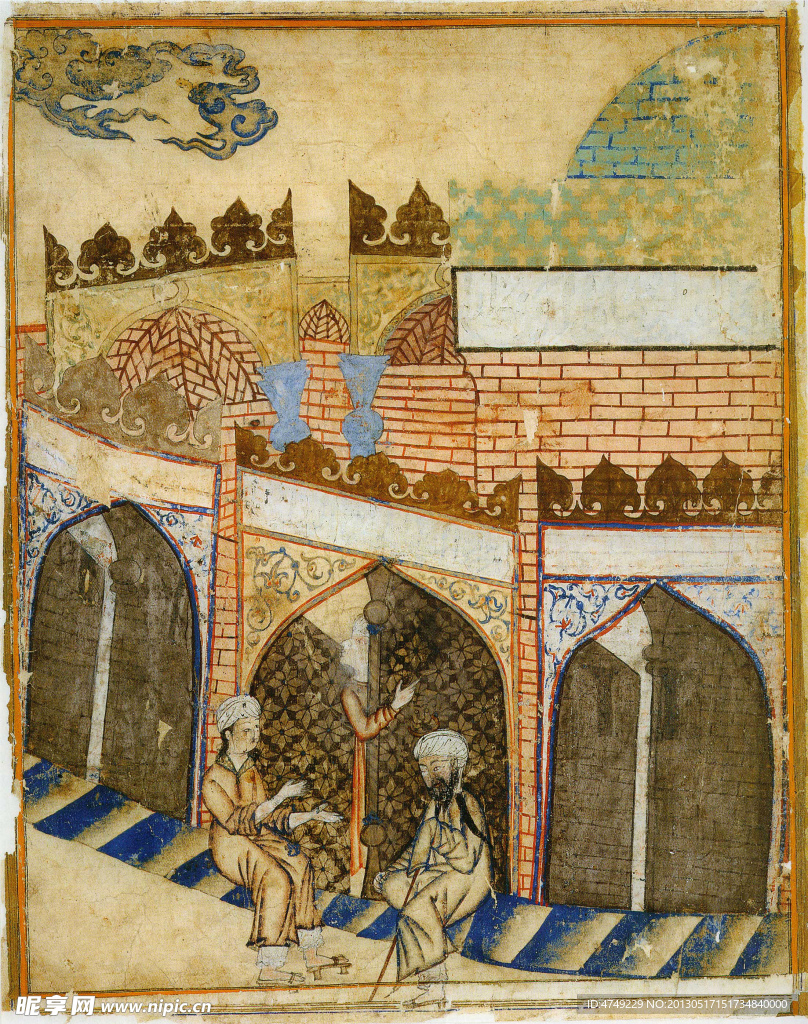 昵享网 www.nipic.cn
ID:4749229 NO:20130517151734840000